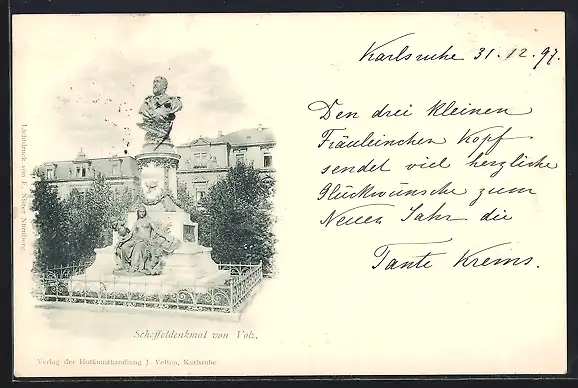 Karlsruhe 31.12.97.
Den drei kleinen
Fräuleinchen Kopf
sendet viel herzliche
Glückwünsche zum
Neuen Jahr die
Tante Krems.
Lichtdruck von F. Nürnberg
Scheffeldenkmal von Volz.
Verlag der Hofkunsthandlung J. Velten, Karlsruhe